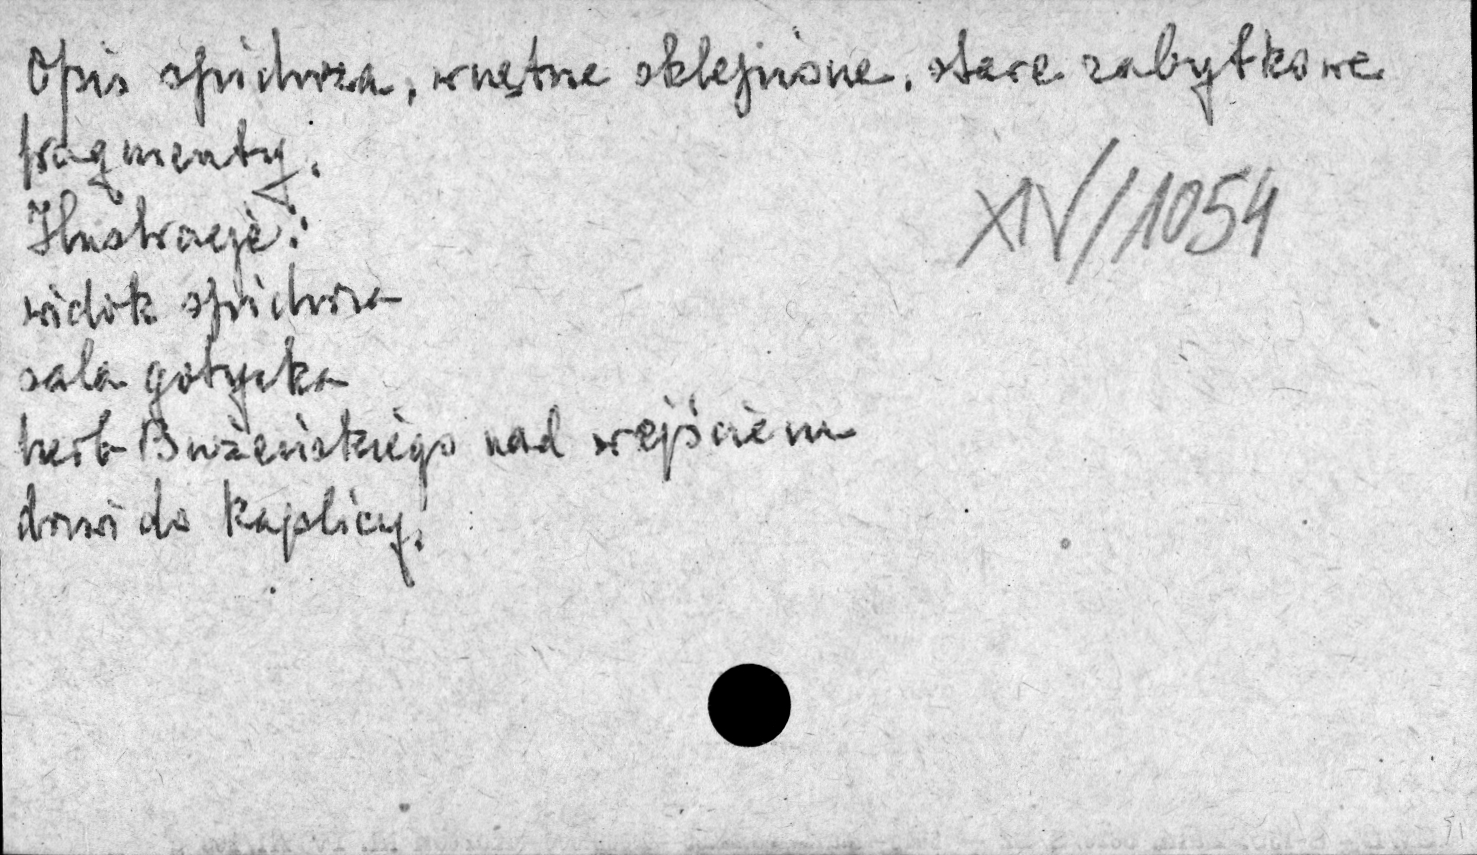 Opis spichrza, wnętrze sklepione, stare zabytkowe
fragmenty.
XIV/1054
Ilustracje:
widok spichrza
sala gotycka
herb Bużeńskiego nad wejściem
drzwi do kaplicy.